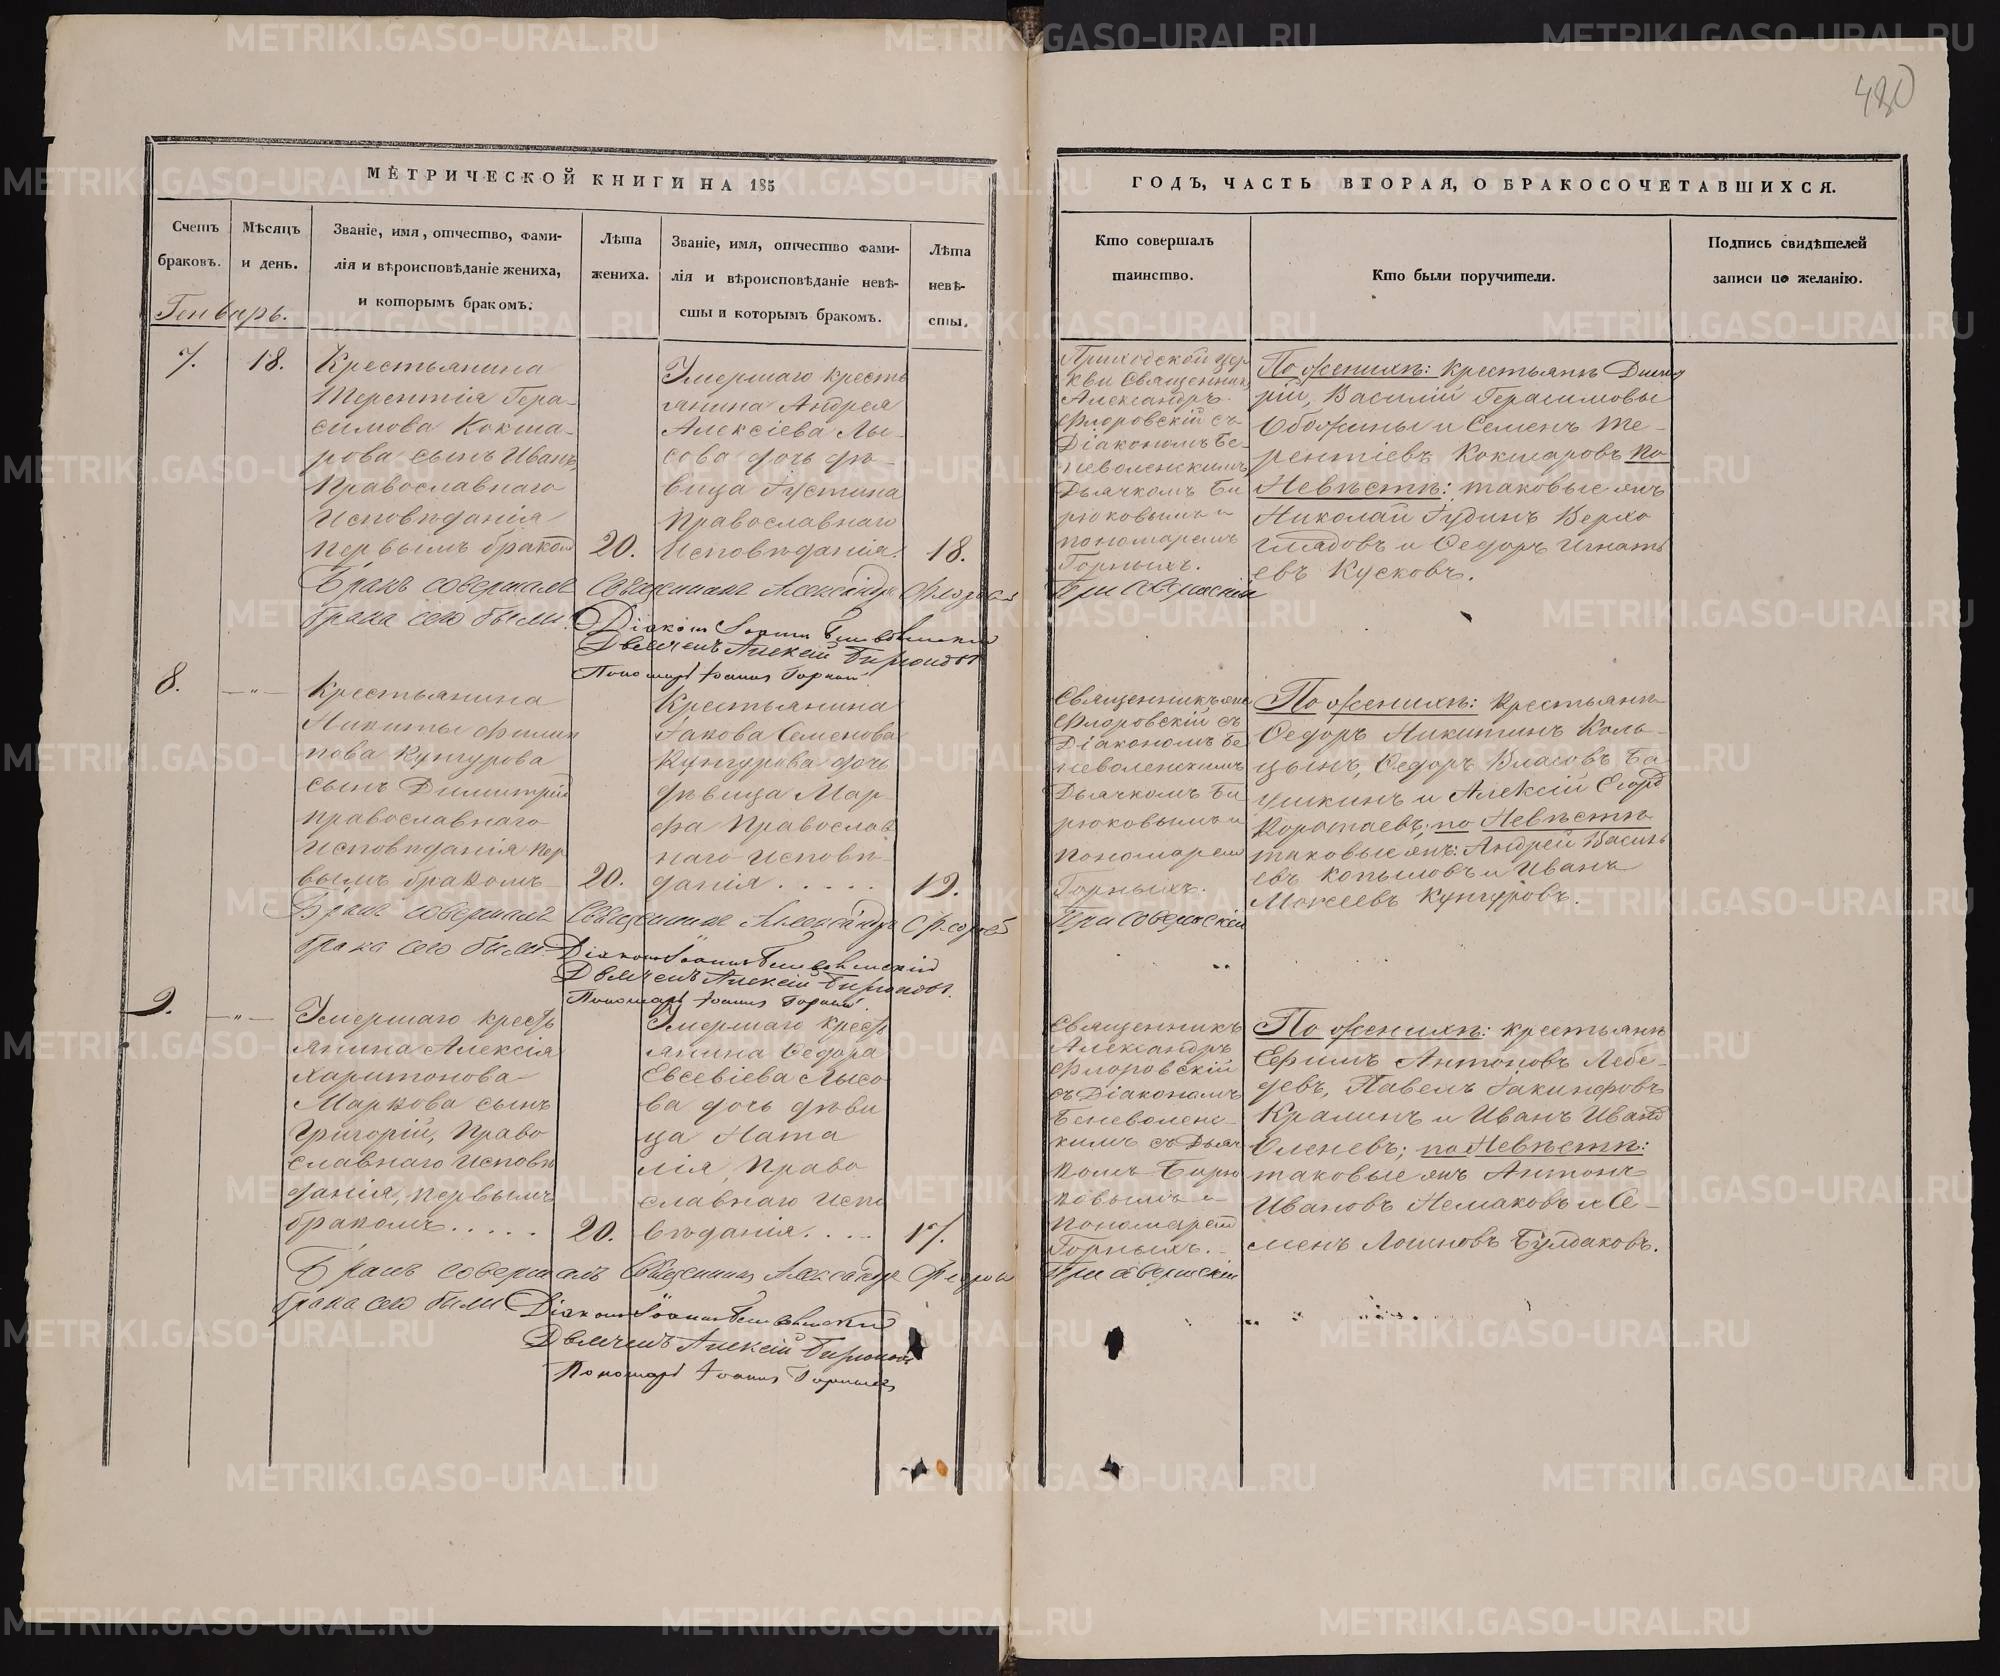 480
МЕТРИЧЕСКОЙ КНИГИ НА 185
Счетъ браковъ.
Мѣсяцъ и день.
Званіе, имя, отчество, фами-
лія и вѣроисповѣданіе жениха,
и которымъ бракомъ.
Лѣта жениха.
Званіе, имя, отчество фами-
лія и вѣроисповѣданіе невѣ-
сты и которымъ бракомъ.
Лѣта невѣ-
сты.
ГОДЪ, ЧАСТЬ ВТОРАЯ, О БРАКОСОЧЕТАВШИХСЯ.
Кто совершалъ
таинство.
Кто были поручители.
Подпись свидѣтелей
записи по желанію.
Генварь.
7.
18.
Крестьянина
Терентія Гера-
симова Кокша-
рова сынъ Иванъ,
Православнаго
Исповѣданія
первымъ бракомъ
20.
Умершаго кресть
янина Андрея
Алексіева Лы-
сова дочь дѣ-
вица Густина
Православнаго
Исповѣданія.
18.
Приходской цер
кви Священникъ
Александръ
Флоровскій съ
Діакономъ Бе-
неволенскимъ
Дьячкомъ Би
рюковымъ и
пономаремъ
Горныхъ.
По женихѣ: крестьяне Димит
рій, Василій Герасимовы
Обожины и Семенъ Те-
рентіевъ Кокшаровъ по
Невѣстѣ: таковые жъ
Николай Гудинъ Верхо
глядовъ и Ѳедоръ Игнать
евъ Кусковъ.
Бракъ совершалъ Священникъ Александръ Флоровск При совершеніи
брака сего были: Діаконъ Іоаннъ Беневоленскій
Дьячекъ Алексѣй Бирюковъ
Пономарь Іоаннъ Горныхъ
8.
— „ —
Крестьянина
Никиты Филип
пова Кунгурова
сынъ Димитрій
православнаго
Исповѣданія пер
вымъ бракомъ
20.
Крестьянина
Іакова Семенова
Кунгурова дочь
дѣвица Мар-
фа Православ
наго Исповѣ-
данія . . . . .
19.
Священникъ
Флоровскій съ
Діакономъ Бе
неволенскимъ
Дьячкомъ Би
рюковымъ и
пономаремъ
Горныхъ.
По женихѣ: Крестьяне
Ѳедоръ Никитинъ Коль-
цынъ, Ѳедоръ Власовъ Ба
ушкинъ и Алексій Егоръ
Коротаевъ; по Невѣстѣ
таковые жъ: Андрей Василь
евъ Копыловъ и Иванъ
Моксеевъ Кунгуровъ.
Бракъ совершалъ Священникъ Александръ Флоров При совершеніи
брака сего были: Діаконъ Іоаннъ Беневоленскій
Дьячекъ Алексѣй Бирюковъ.
Пономарь Іоаннъ Горныхъ
9.
— „ —
Умершаго кресть
янина Алексія
Харитонова
Маркова сынъ
Григорій, Право
славнаго Исповѣ
данія, первымъ
бракомъ . . . . .
20.
Умершаго крест
янина Ѳедора
Евсевіева Лысо
ва дочь дѣви
ца Ната
лія, Право
славнаго Испо
вѣданія. . . .
17.
Священникъ
Александръ
Флоровскій
съ Діакономъ
Беневоленс-
кимъ съ Дьяч
комъ Бирю
ковымъ и
Пономаремъ
Горныхъ.
По женихѣ: крестьяне
Ефимъ Антоновъ Лебе-
девъ, Павелъ Іакинфовъ
Кралинъ и Иванъ Иванъ
Оленевъ; по Невѣстѣ:
таковые жъ Антонъ
Ивановъ Чемаковъ и Се-
менъ Логиновъ Булдаковъ.
Бракъ совершалъ Священникъ Александръ Флоров При совершеніи
брака сего были: Діаконъ Іоаннъ Беневоленскій
Дьячекъ Алексѣй Бирюковъ
Пономарь Іоаннъ Горныхъ
METRIKI.GASO-URAL.RU